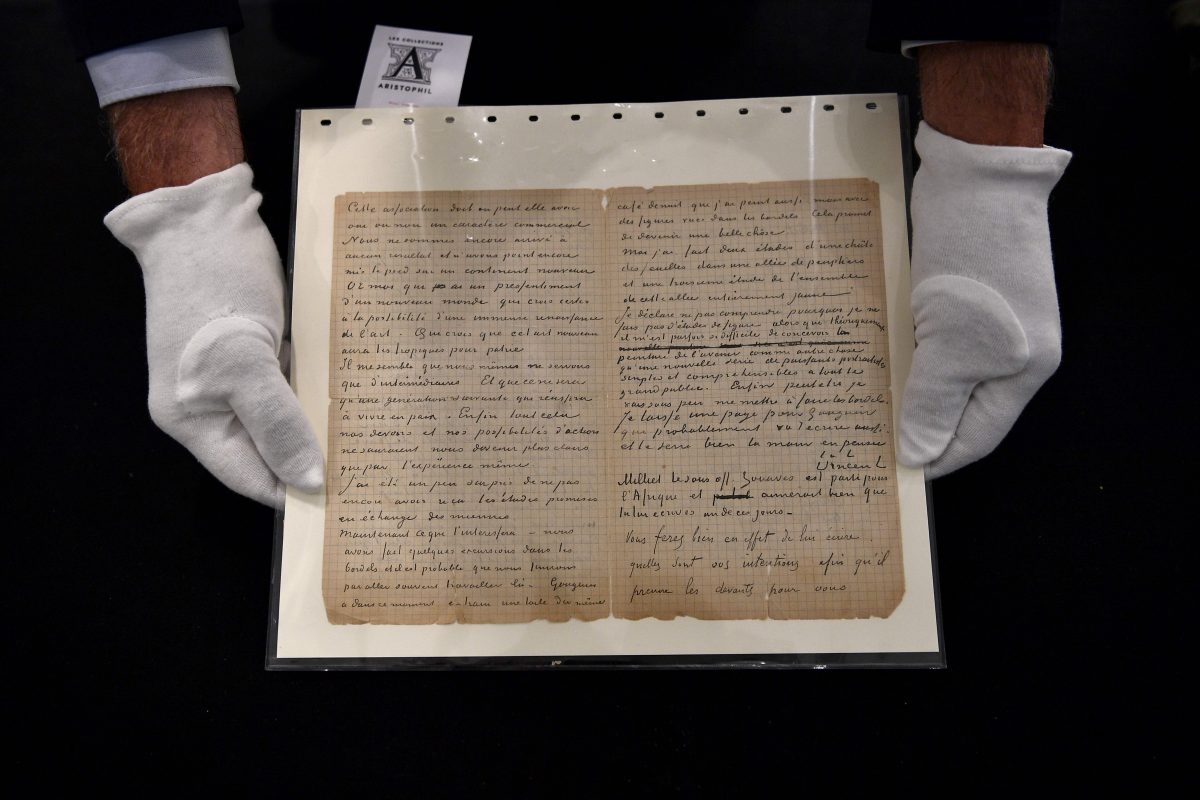 LES COLLECTIONS
A
ARISTOPHIL
Cette association doit ou peut elle avoir
oui ou non un caractère commercial
Nous ne sommes encore arrivé à
aucun resultat et n'avons point encore
mis le pied sur un continent nouveau
Or moi qui ai un presentiment
d'un nouveau monde qui crois certes
à la possibilité d'une immense renaissance
de l'art. Qui crois que cet art nouveau
aura les tropiques pour patrie
Il me semble que nous mêmes ne servons
que d'intermédiaires. Et que ce ne sera
qu'une génération suivante qui reussira
à vivre en paix. Enfin tout cela
nos devoirs et nos possibilités d'action
ne sauraient nous devenir plus clairs
que par l'expérience même.
J'ai été un peu surpris de ne pas
encore avoir reçu les études promises
en échange des miennes
Maintenant ce qui t'interessera – nous
avons fait quelques excursions dans les
bordels et il est probable que nous finirons
par aller souvent travailler là. Gauguin
a dans ce moment en train une toile du même
café de nuit que j'ai peint aussi mais avec
des figures vues dans les bordels. Cela promet
de devenir une belle chôse.
Moi j'ai fait deux études d'une chûte
des feuilles dans une allée de peupliers
et une troisieme étude de l'ensemble
de cette allée entierement jaune.
Je déclare ne pas comprendre pourquoi je ne
fais pas d'études de figure alors que théoriquement
il m'est parfois si difficile de concevoir la
peinture de l'avenir comme autre chose
qu'une nouvelle serie de puissants portraitistes
simples et comprehensibles à tout le
grand public. Enfin peut etre je
vais sous peu me mettre à faire les bordels.
Je laisse une page pour Gauguin
qui probablement va t'ecrire aussi.
et te serre bien la main en pensée
t. à t.
Vincent
Milliet le sous off. Zouaves est parti pour
l'Afrique et aimerait bien que
tu lui ecrives un de ces jours –
Vous ferez bien en effet de lui écrire
quelles sont vos intentions afin qu'il
prenne les devants pour vous